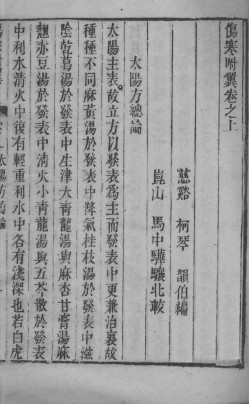 傷寒附翼卷之上
慈谿 柯琴 韻伯編
崑山 馬中驊驤北較
太陽方總論
太陽主表故立方以發表為主而發表中更兼治裏故
種種不同麻黃湯於發表中降氣桂枝湯於發表中滋
陰乾葛湯於發表中生津大青龍湯與麻杏甘膏湯麻
翹赤豆湯於發表中清火小青龍湯與五苓散於發表
中利水清火中復有輕重利水中各有淺深也若白虎
太陽方總論